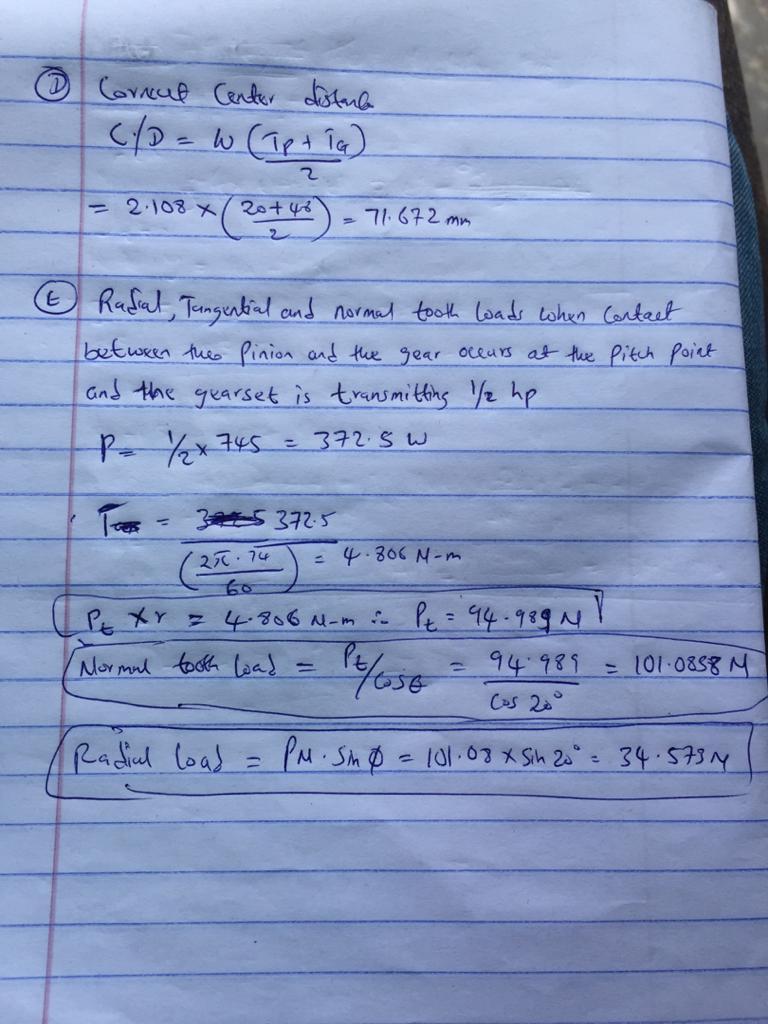 (D) Correct Center distance
C/D = W (Tp + TG / 2)
= 2.108 × (20+48 / 2) = 71.672 mm
(E) Radial, Tangential and normal tooth loads when Contact
between the Pinion and the gear occurs at the pitch point
and the gearset is transmitting 1/2 hp
P = 1/2 × 745 = 372.5 W
T = 372.5 / (2π · / 60) = 4.806 N-m
Pt × r = 4.806 N-m ∴ Pt = 94.989 N
Normal tooth load = Pt/Cosθ = 94.989 / Cos 20° = 101.0858 N
Radial load = PN · Sin ϕ = 101.08 × Sin 20° = 34.573 N